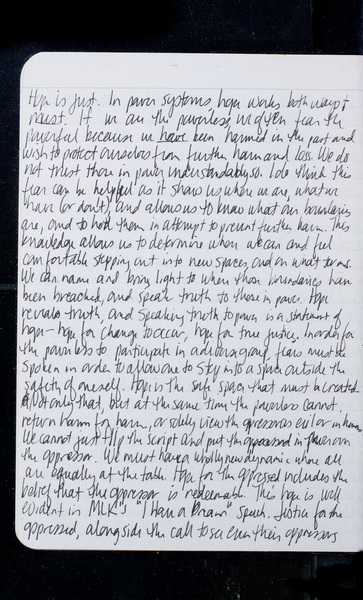 Hope is just. In power systems, hope works both ways &
must. If we are the powerless, we often fear the
powerful because we have been harmed in the past and
wish to protect ourselves from further harm and loss. We do
not trust those in power, understandably so. I do think this
fear can be helpful as it shows us where we are, what we
have (or don't), and allows us to know what our boundaries
are, and to hold them in attempt to prevent further harm. This
knowledge allows us to determine when we can and feel
comfortable stepping out into new spaces, and on what terms.
We can name and bring light to when those boundaries have
been breached, and speak truth to those in power. Hope
reveals truth, and speaking truth to power is a statement of
hope - hope for change to occur, hope for true justice. In order for
the powerless to participate in a diverse group, fears must be
spoken in order to allow one to step into a space outside the
safety of oneself. Hope is the safe space that must be created.
Not only that, but at the same time the powerless cannot
return harm for harm, or solely view the oppressor as evil or inhuman.
We cannot just flip the script and put the oppressed in power over
the oppressor. We must have a wholly new dynamic where all
are equally at the table. Hope for the oppressed includes the
belief that the oppressor is redeemable. This hope is well
evident in MLK's "I Have a Dream" speech. Justice for the
oppressed, alongside the call to see even their oppressors